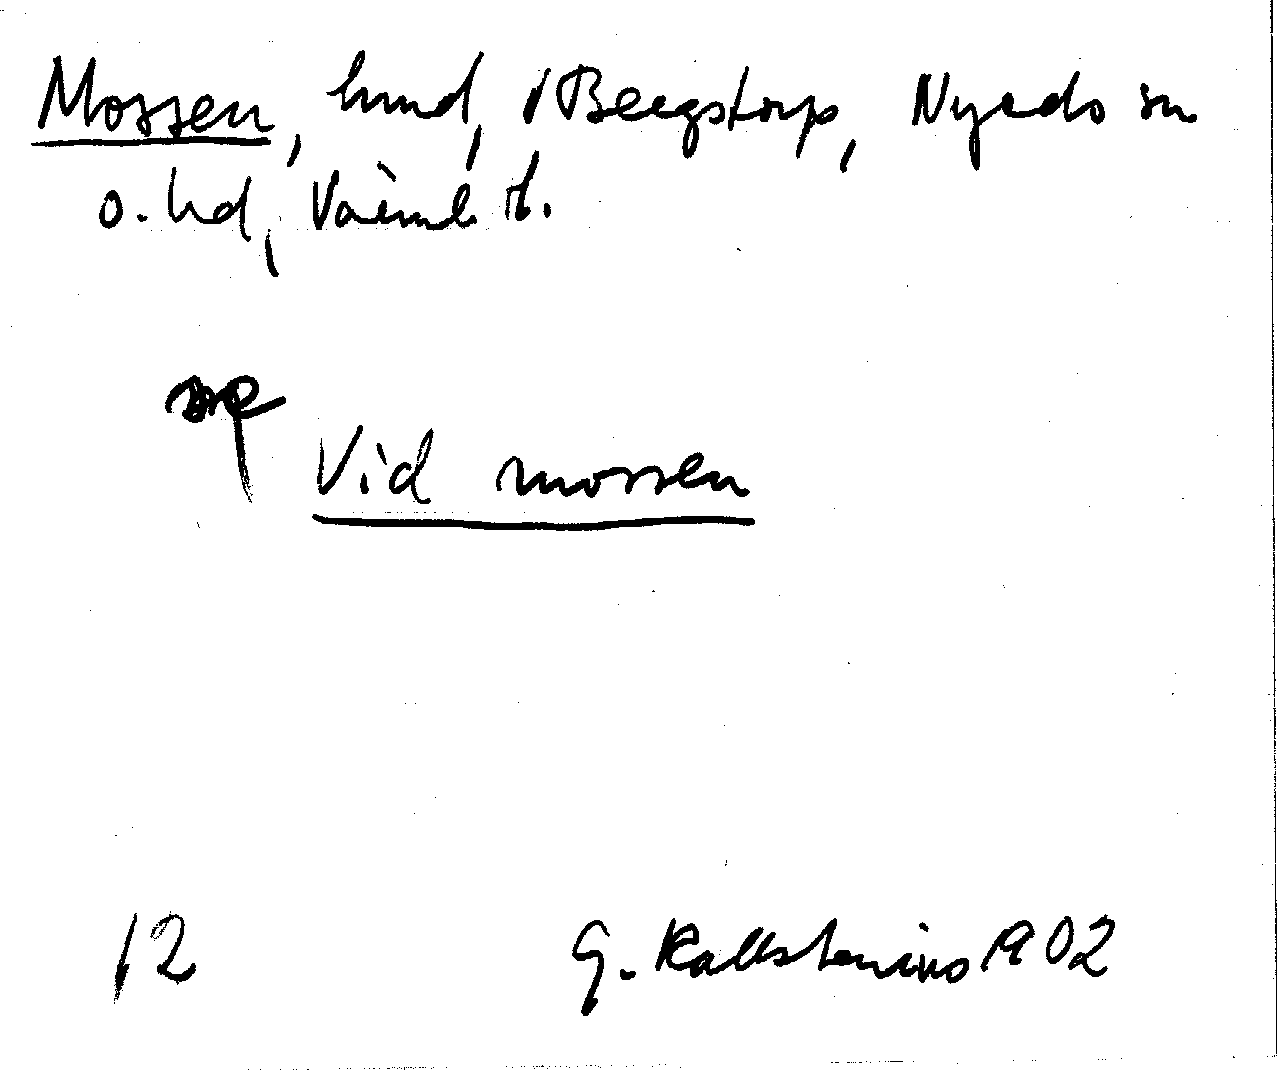 Mossen, hmd, /Bergstorp, Nyeds sn
o. hd, Värml l.
Vid mossen
12 G. Kallstenius 1902